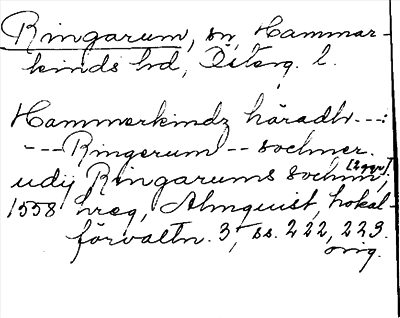 Ringarum, sn, Hammar-
kinds hd, Österg. l.
Hammerkindz häradh ---:
--- Ringerum -- sochner.
udij Ringarums sochnn, [2 ggr],
1558 hreg, Almquist, Lokal-
förvaltn. 3, ss. 222, 223.
orig.